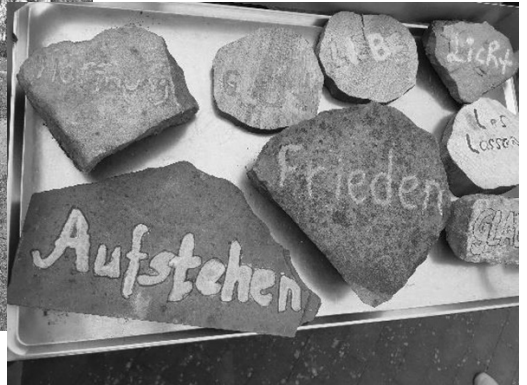 Hoffnung
LIEBE
Licht
Los
Lassen
Frieden
Aufstehen